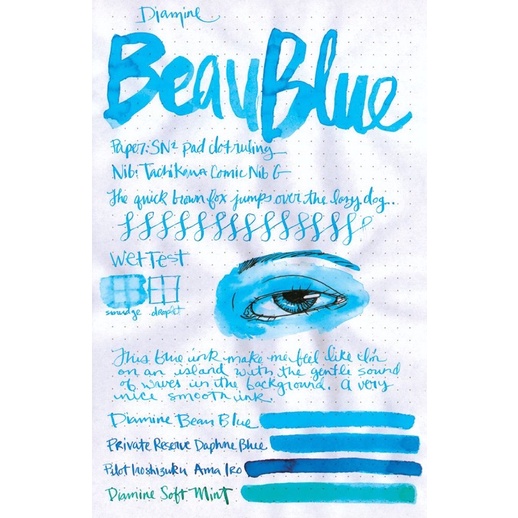 Diamine
BeauBlue
Paper: SN² pad dot ruling
Nib: Tachikawa Comic Nib G
The quick brown fox jumps over the lazy dog..
Wet Test
smudge droplet
This blue ink make me feel like I'm
on an island with the gentle sound
of waves in the background. A very
nice smooth ink.
Diamine Beau Blue
Private Reserve Daphne Blue
Pilot Iroshizuku Ama Iro
Diamine Soft Mint